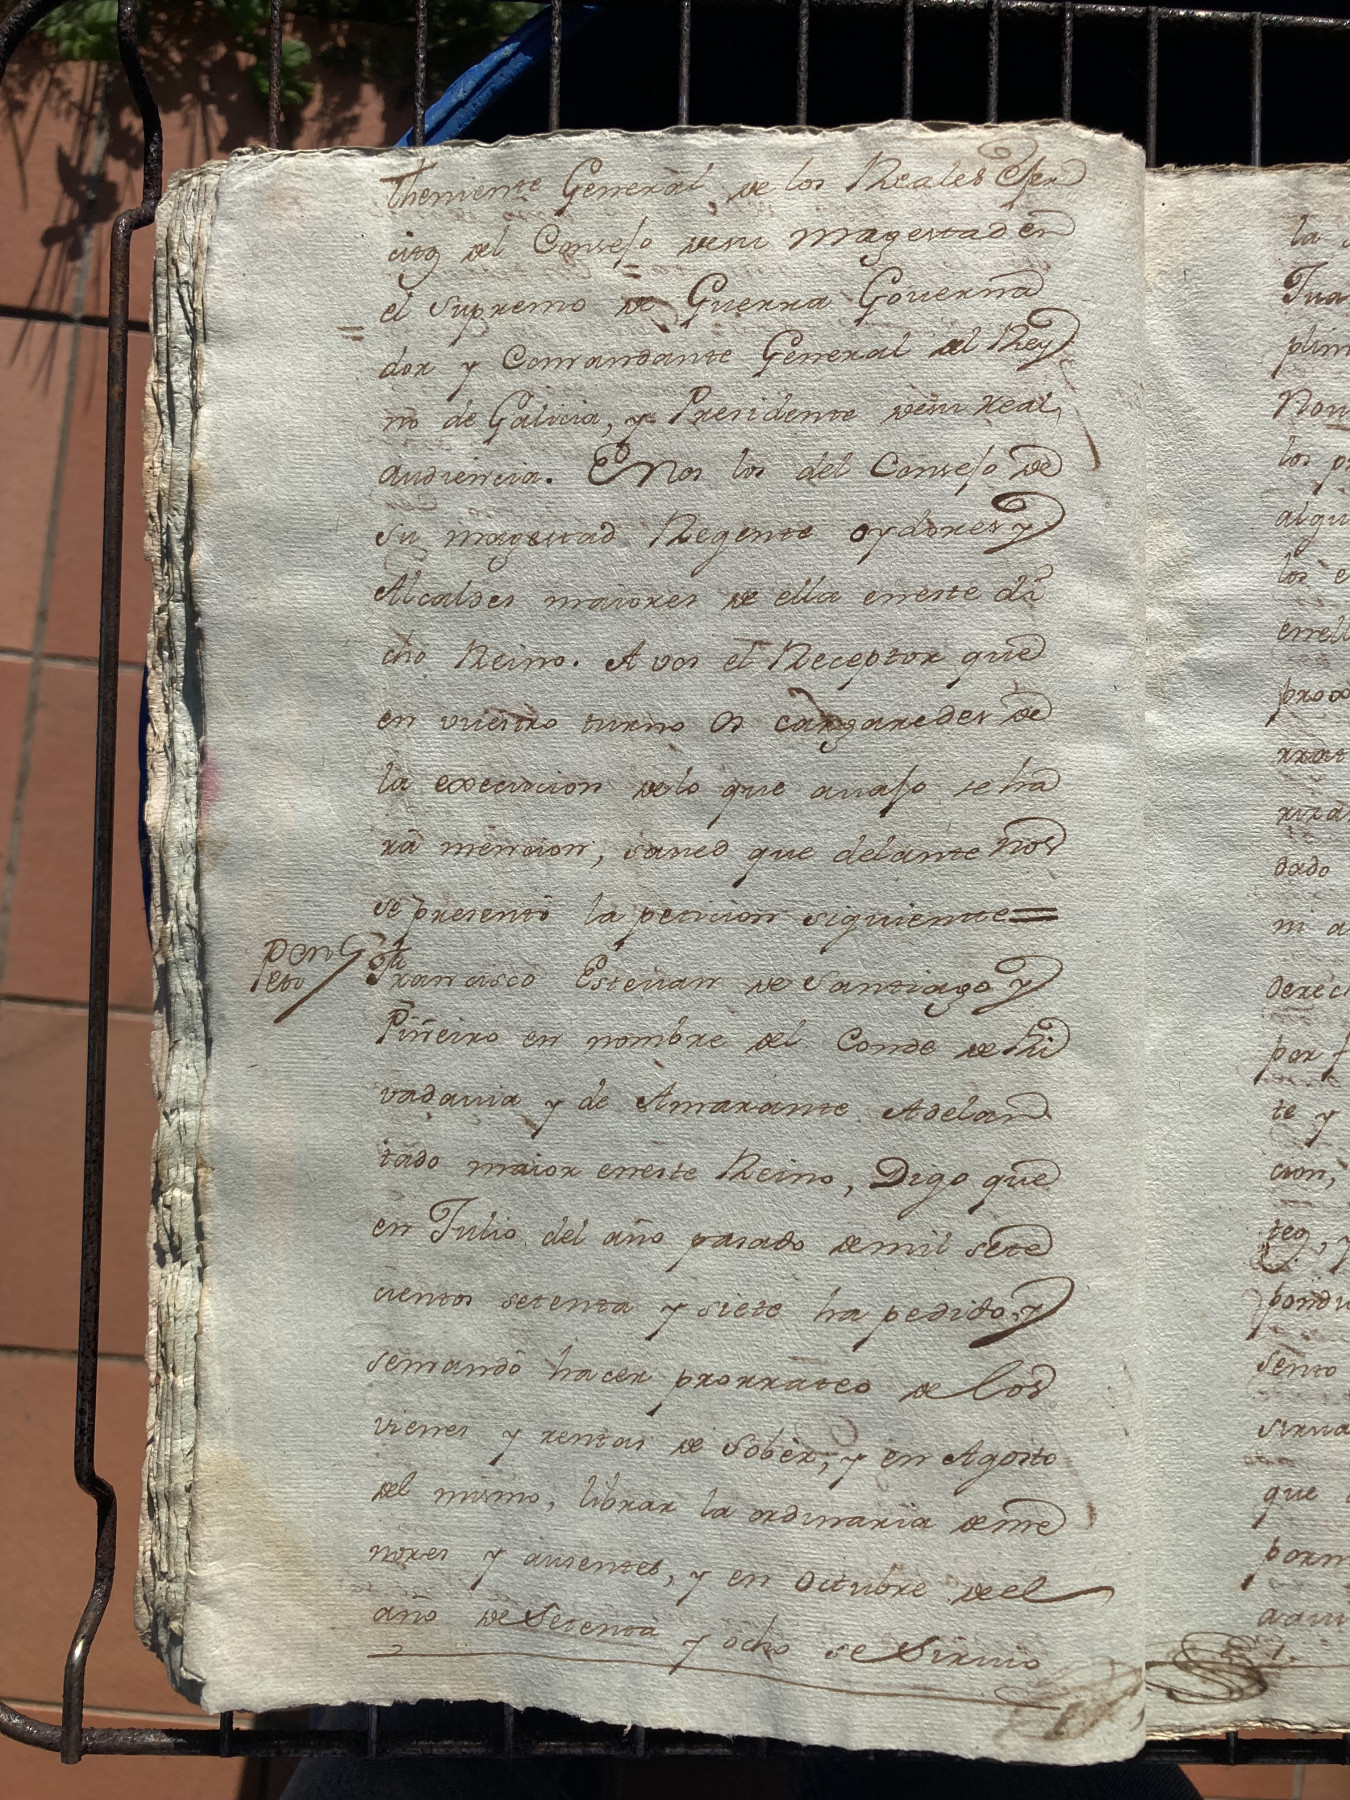 theniente General de los Reales Exer
citos del Consejo desu Magestad en
el Supremo de Guerra Governa
dor y Comandante General del Rey
no de Galicia, y Presidente desu Real
audiencia. E Nos los del Consejo de
su magestad Regente oydores y
Alcaldes maiores de ella eneste di
cho Reino. A vos el Receptor que
en vuestro turno os cargaredes de
la execucion delo que avajo se ha
rá mencion, saved que delante nos
se presentó la peticion siguiente =
Francisco Estevan de Santiago y
Piñeiro en nombre del Conde de Ri
vadavia y de Amarante Adelan
tado maior eneste Reino, Digo que
en Julio del año pasado demil sete
cientos setenta y siete ha pedido, y
semandó hacer prorrateo de los
vienes y rentas de Sobér, y en Agosto
del mismo, librar la ordinaria deme
nores y ausentes, y en octubre de el
año de Setenta y ocho se Sirvio
la
Jua
plim
Nom
los p
algu
los e
enell
proo
rrat
riza
dado
ni a
derec
por
te y
cion,
tos, y
pondi
sento
sirva
que
porm